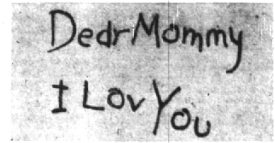 Dedr Mommy
I Lov You